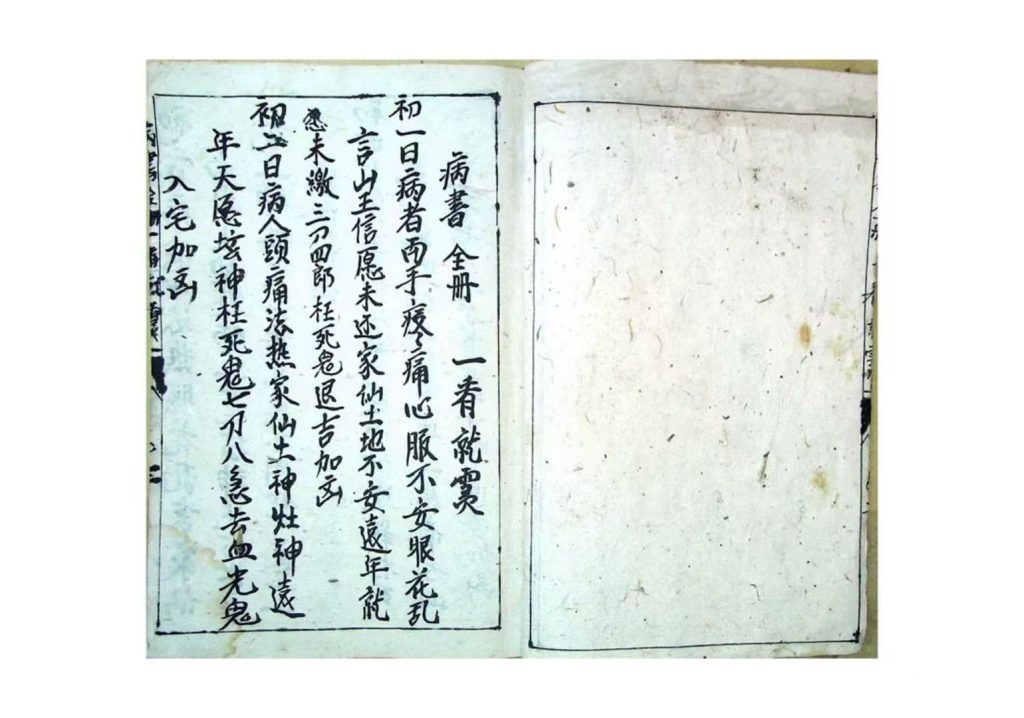 病書 全册 一看就灵
初一日病者両手痠痛心服不安眼花乱
言山王信愿未还家仙土地不安遠年就
愿未繳三刀四郎枉死鬼退吉加凶
初二日病人頭痛法热家仙土神灶神遠
年天愿坟神枉死鬼七刀八急去血光鬼
入宅加凶